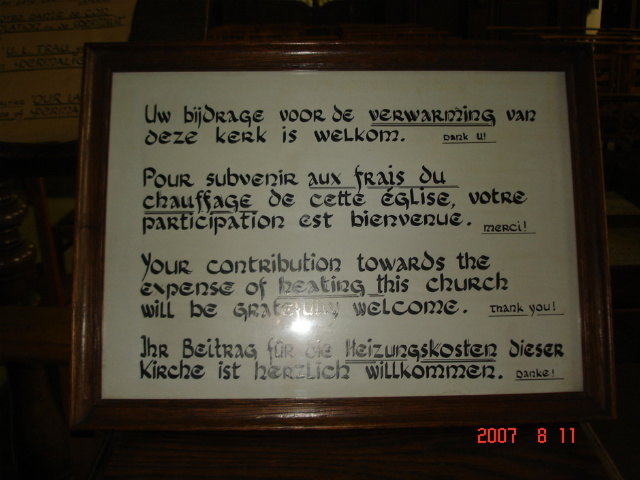 Uw bijdrage voor de verwarming van
deze kerk is welkom. Dank u!
Pour subvenir aux frais du
chauffage de cette église, votre
participation est bienvenue. merci!
Your contribution towards the
expense of heating this church
will be gratefully welcome. Thank you!
Ihr Beitrag für die Heizungskosten dieser
Kirche ist herzlich willkommen. Danke!
2007 8 11